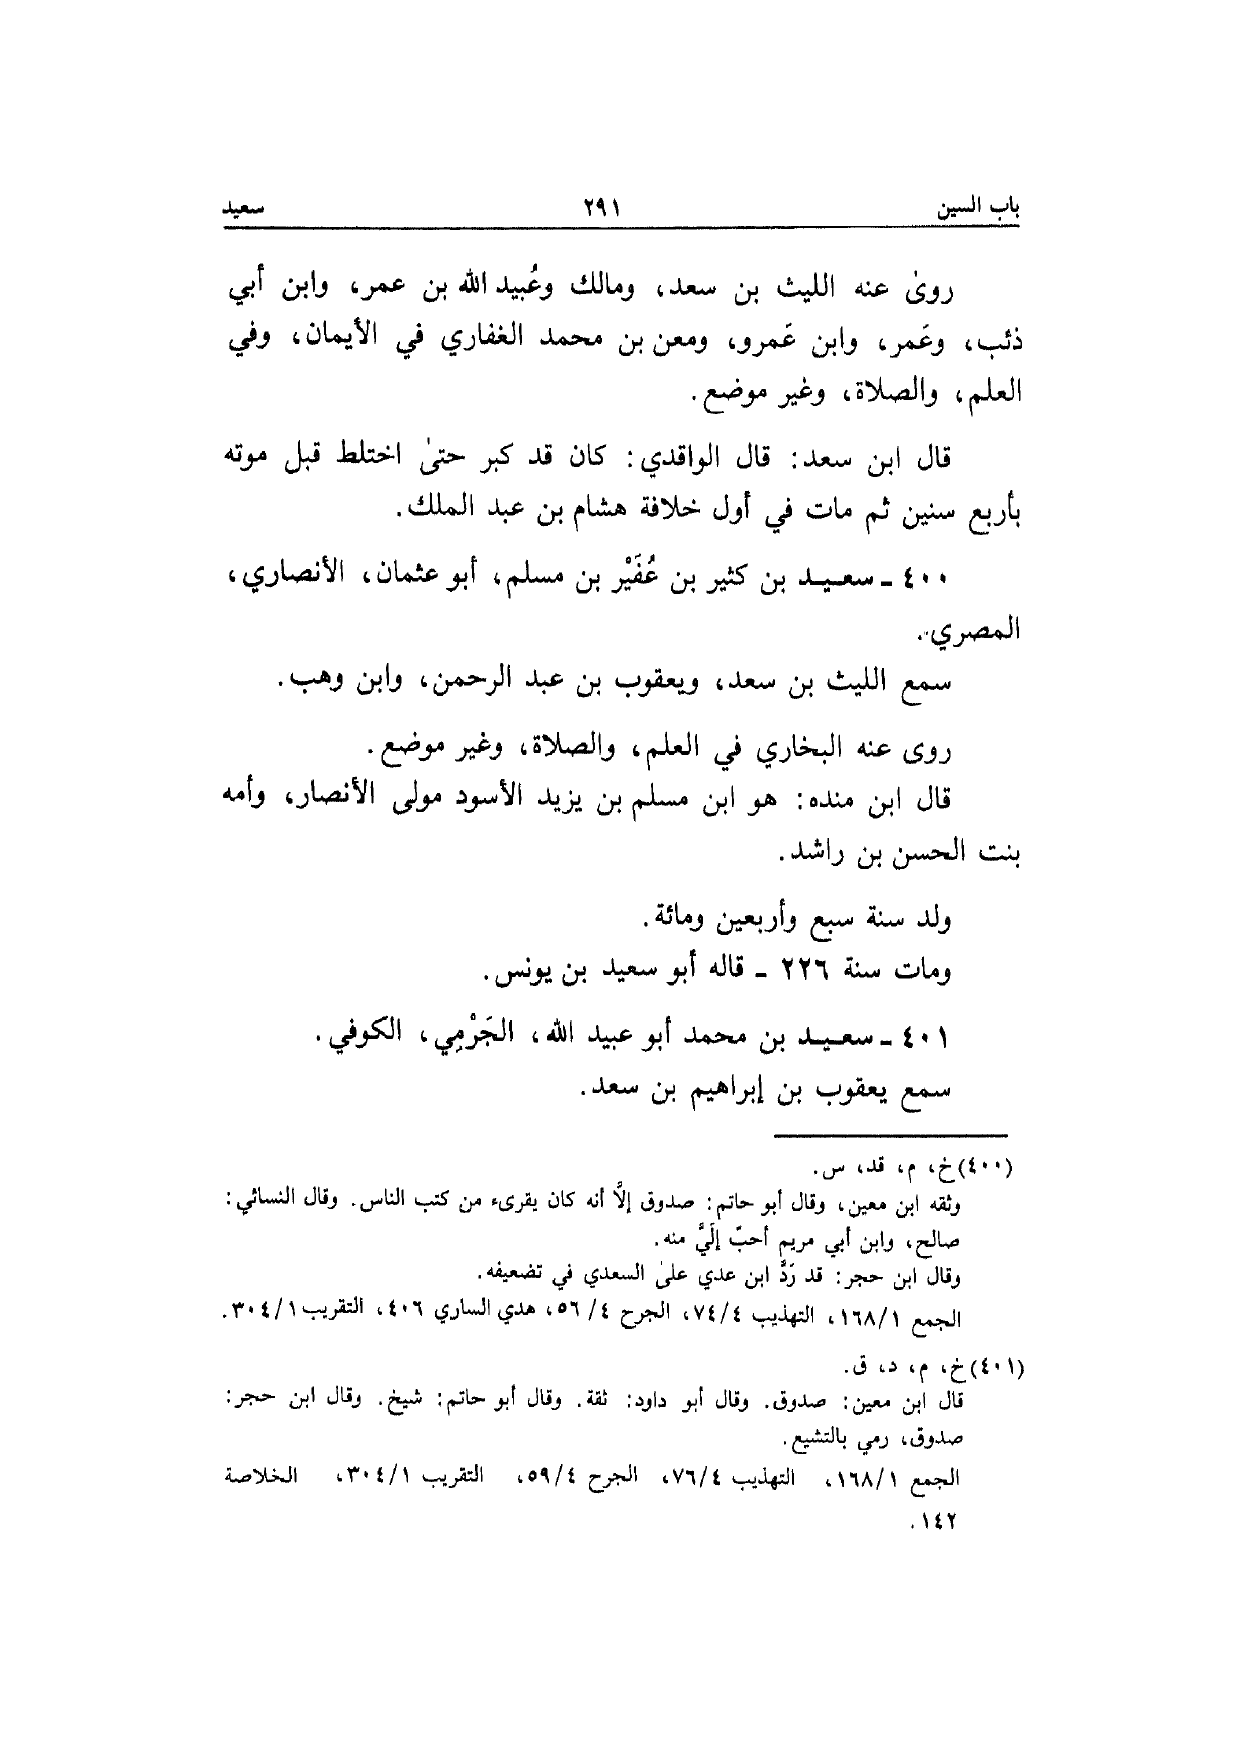 باب السين ٢٩١ سعيد
روىٰ عنه الليث بن سعد، ومالك وعُبيد الله بن عمر، وابن أبي
ذئب، وعَمر، وابن عَمرو، ومعن بن محمد الغفاري في الأيمان، وفي
العلم، والصلاة، وغير موضع.
قال ابن سعد: قال الواقدي: كان قد كبر حتىٰ اختلط قبل موته
بأربع سنين ثم مات في أول خلافة هشام بن عبد الملك.
٤٠٠ ـ سعيد بن كثير بن عُفَيْر بن مسلم، أبو عثمان، الأنصاري،
المصري.
سمع الليث بن سعد، ويعقوب بن عبد الرحمن، وابن وهب.
روى عنه البخاري في العلم، والصلاة، وغير موضع.
قال ابن منده: هو ابن مسلم بن يزيد الأسود مولى الأنصار، وأمه
بنت الحسن بن راشد.
ولد سنة سبع وأربعين ومائة.
ومات سنة ٢٢٦ ـ قاله أبو سعيد بن يونس.
٤٠١ ـ سعيد بن محمد أبو عبيد الله، الجَرْمِي، الكوفي.
سمع يعقوب بن إبراهيم بن سعد.
(٤٠٠) خ، م، قد، س.
وثقه ابن معين، وقال أبو حاتم: صدوق إلاَّ أنه كان يقرىء من كتب الناس. وقال النسائي:
صالح، وابن أبي مريم أحبّ إلَيَّ منه.
وقال ابن حجر: قد رَدَّ ابن عدي علىٰ السعدي في تضعيفه.
الجمع ١/١٦٨، التهذيب ٤/٧٤، الجرح ٤/ ٥٦، هدي الساري ٤٠٦، التقريب ١/ ٣٠٤.
(٤٠١) خ، م، د، ق.
قال ابن معين: صدوق. وقال أبو داود: ثقة. وقال أبو حاتم: شيخ. وقال ابن حجر:
صدوق، رمي بالتشيع.
الجمع ١/١٦٨، التهذيب ٤/٧٦، الجرح ٤/٥٩، التقريب ١/٣٠٤، الخلاصة
١٤٢.